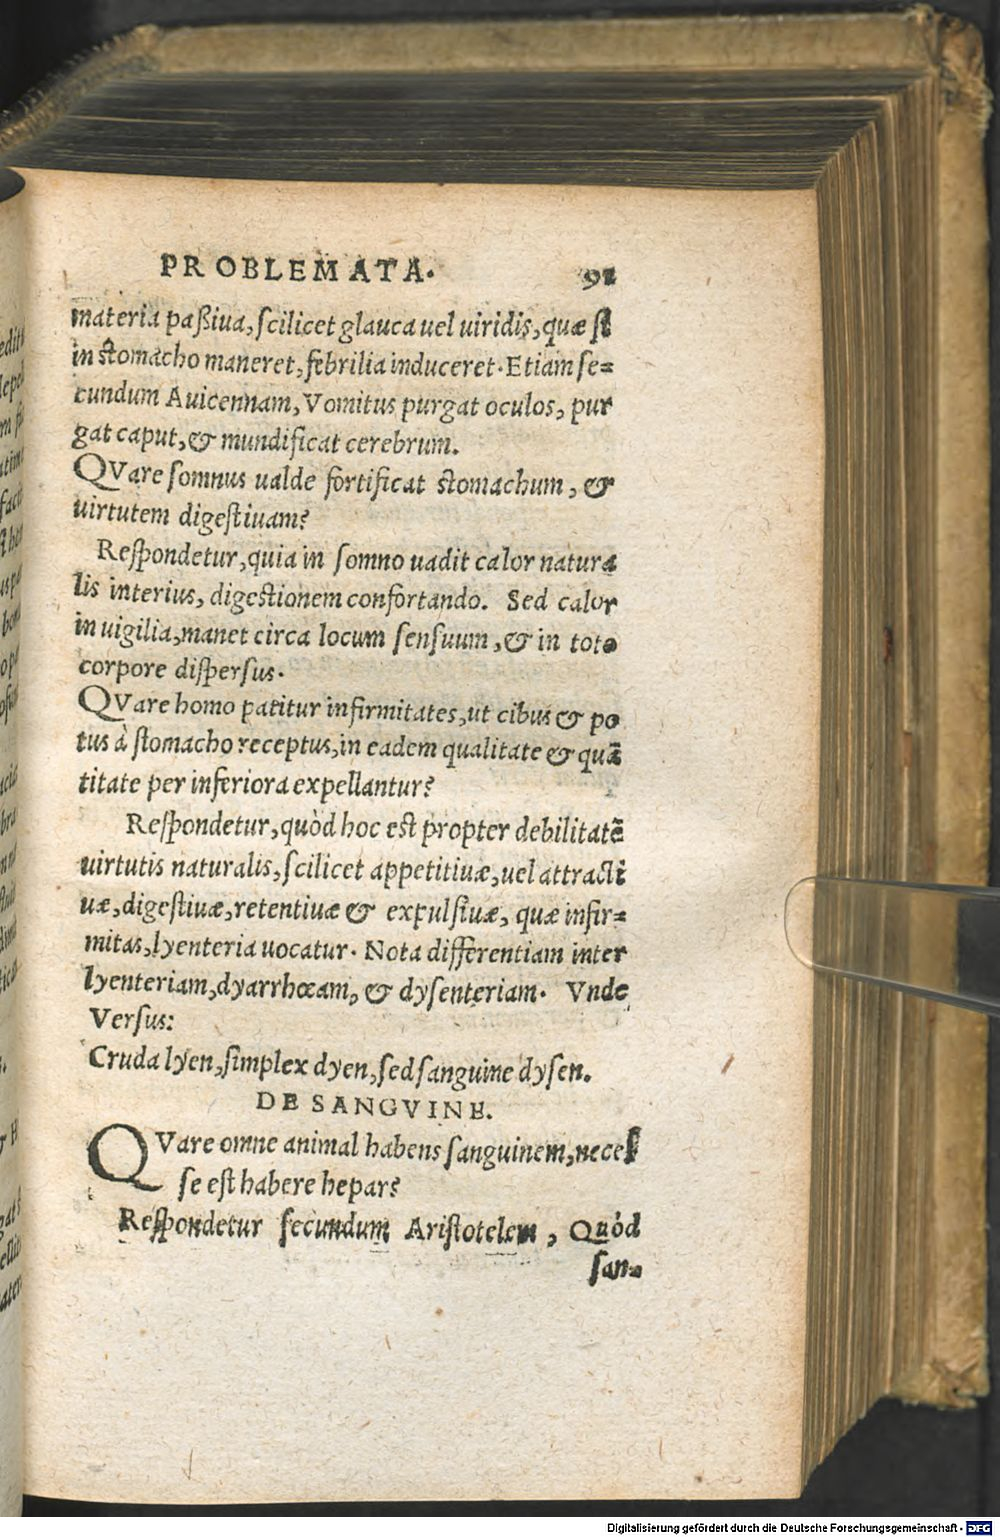 PROBLEMATA. 91
materia paßiua, scilicet glauca uel uiridis, quæ si
in stomacho maneret, febrilia induceret. Etiam se=
cundum Auicennam, Vomitus purgat oculos, pur
gat caput, & mundificat cerebrum.
QVare somnus ualde fortificat stomachum, &
uirtutem digestiuam?
Respondetur, quia in somno uadit calor natura
lis interius, digestionem confortando. Sed calor
in uigilia, manet circa locum sensuum, & in toto
corpore dispersus.
QVare homo patitur infirmitates, ut cibus & po
tus à stomacho receptus, in eadem qualitate & quã
titate per inferiora expellantur?
Respondetur, quòd hoc est propter debilitatẽ
uirtutis naturalis, scilicet appetitiuæ, uel attracti
uæ, digestiuæ, retentiuæ & expulsiuæ, quæ infir=
mitas, lyenteria uocatur. Nota differentiam inter
lyenteriam, dyarrhœam, & dysenteriam. Vnde
Versus:
Cruda lyen, simplex dyen, sed sanguine dysen.
DE SANGVINE.
QVare omne animal habens sanguinem, neces
se est habere hepar?
Respondetur secundum Aristotelem, Quòd
san=
Digitalisierung gefördert durch die Deutsche Forschungsgemeinschaft - DFG